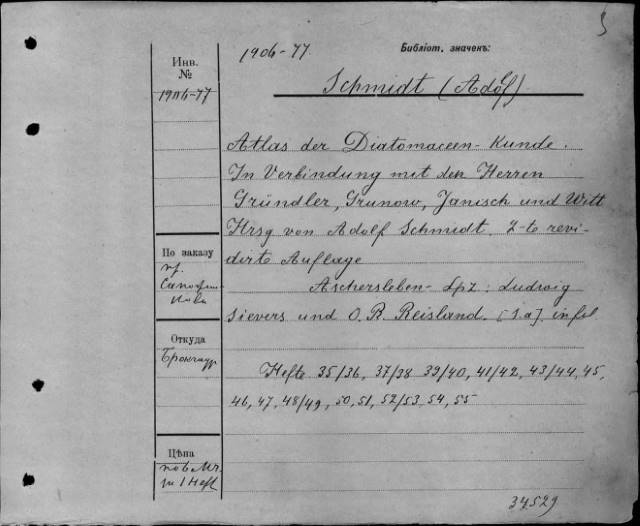 1906-77
Библіот. значекъ:
Инв.
№
1906-77
Schmidt (Adolf)
Atlas der Diatomaceen-Kunde.
In Verbindung mit den Herren
Gründler, Grunow, Janisch und Witt
Hrsg von Adolf Schmidt. 2-te revi-
dirte Auflage
Aschersleben-Lpz: Ludwig
Sievers und O. R. Reisland. [s.a] infol
Hefte 35/36, 37/38 39/40, 41/42, 43/44, 45,
46, 47, 48/49, 50, 51, 52/53, 54, 55
По заказу
пр.
Откуда
Цѣна
по 6 Mr.
1 Heft
34529